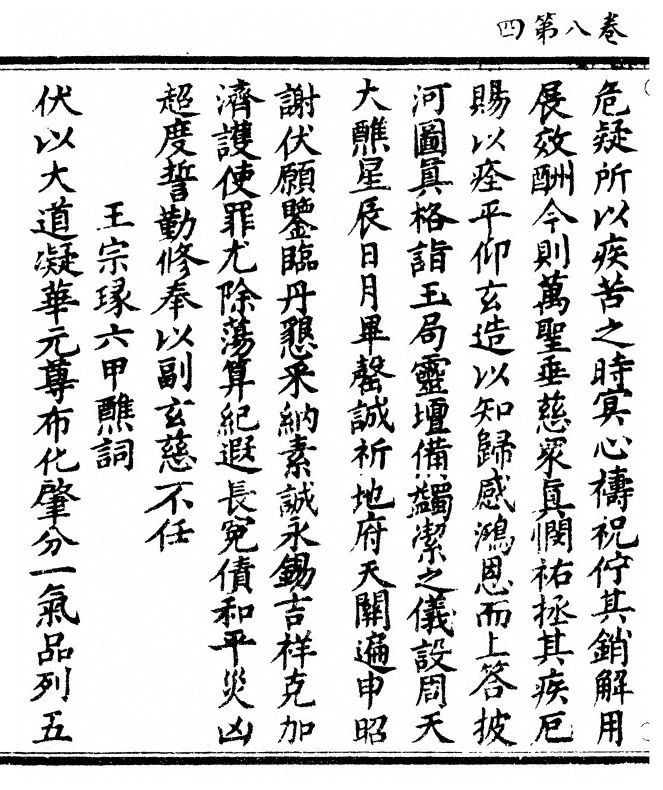 四第八卷
危疑所以疾苦之時㝠心禱祝佇其銷解用
展效酬今則萬聖垂慈衆真憫祐拯其疾厄
賜以痊平仰玄造以知歸感鴻恩而上答披
河圖真格詣玉局靈壇備蠲潔之儀設周天
大醮星辰日月畢罄誠祈地府天關遍申昭
謝伏願鑒臨丹懇采納素誠永錫吉祥克加
濟護使罪尤除蕩算紀遐長寃債和平災凶
超度誓勤修奉以副玄慈不任
王宗瑑六甲醮詞
伏以大道凝華元尊布化肇分一氣品列五